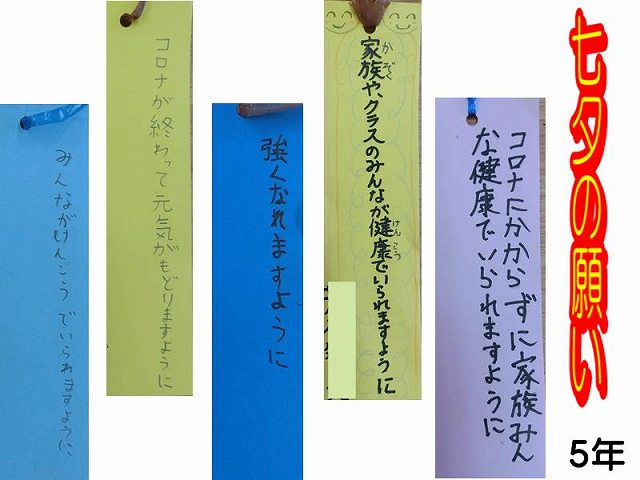 七夕の願い
5年
コロナにかからずに家族みん
な健康でいられますように
家族や、クラスのみんなが健康でいられますように
かぞく
けんこう
強くなれますように
コロナが終わって元気がもどりますように
みんながけんこうでいられますように